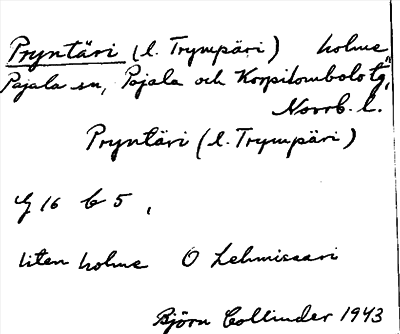 Pryntäri (l. Trympäri) holme
Pajala sn, Pajala och Korpilombolo tg,
Norrb. l.
Pryntäri (l. Trympäri)
G 16 b 5,
liten holme O Lehmisaari
Björn Collinder 1943